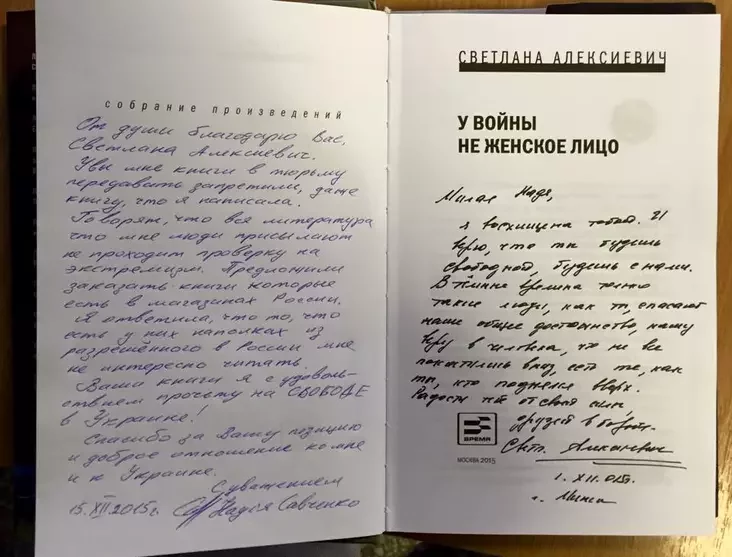 собрание произведений
От души благодарю Вас,
Светлана Алексиевич.
Увы мне книги в тюрьму
передавать запретили, даже
книгу, что я написала.
Говорят, что вся литература
что мне люди присылают
не проходит проверку на
экстремизм. Предложили
заказать книги которые
есть в магазинах России.
Я ответила, что то, что
есть у них на полках из
разрешённого в России мне
не интересно читать.
Ваши книги я с удоволь-
ствием прочту на СВОБОДЕ
в Украине!
Спасибо за Вашу позицию
и доброе отношение ко мне
и к Украине.
С уважением
15.XII.2015г. Надія Савченко
СВЕТЛАНА АЛЕКСИЕВИЧ
У ВОЙНЫ
НЕ ЖЕНСКОЕ ЛИЦО
Милая Надя,
я восхищена тобой. Я
верю, что ты будешь
свободной, будешь с нами.
В тёмные времена только
такие люди, как ты, спасают
наше общее достоинство, нашу
веру в человека, что не все
покатились вниз, есть те, как
ты, кто поднялся вверх.
Радости тебе от своей силы,
друзей в
Светл. Алексиевич
ВРЕМЯ
МОСКВА 2015
1. XII. 015г.
г. Минск